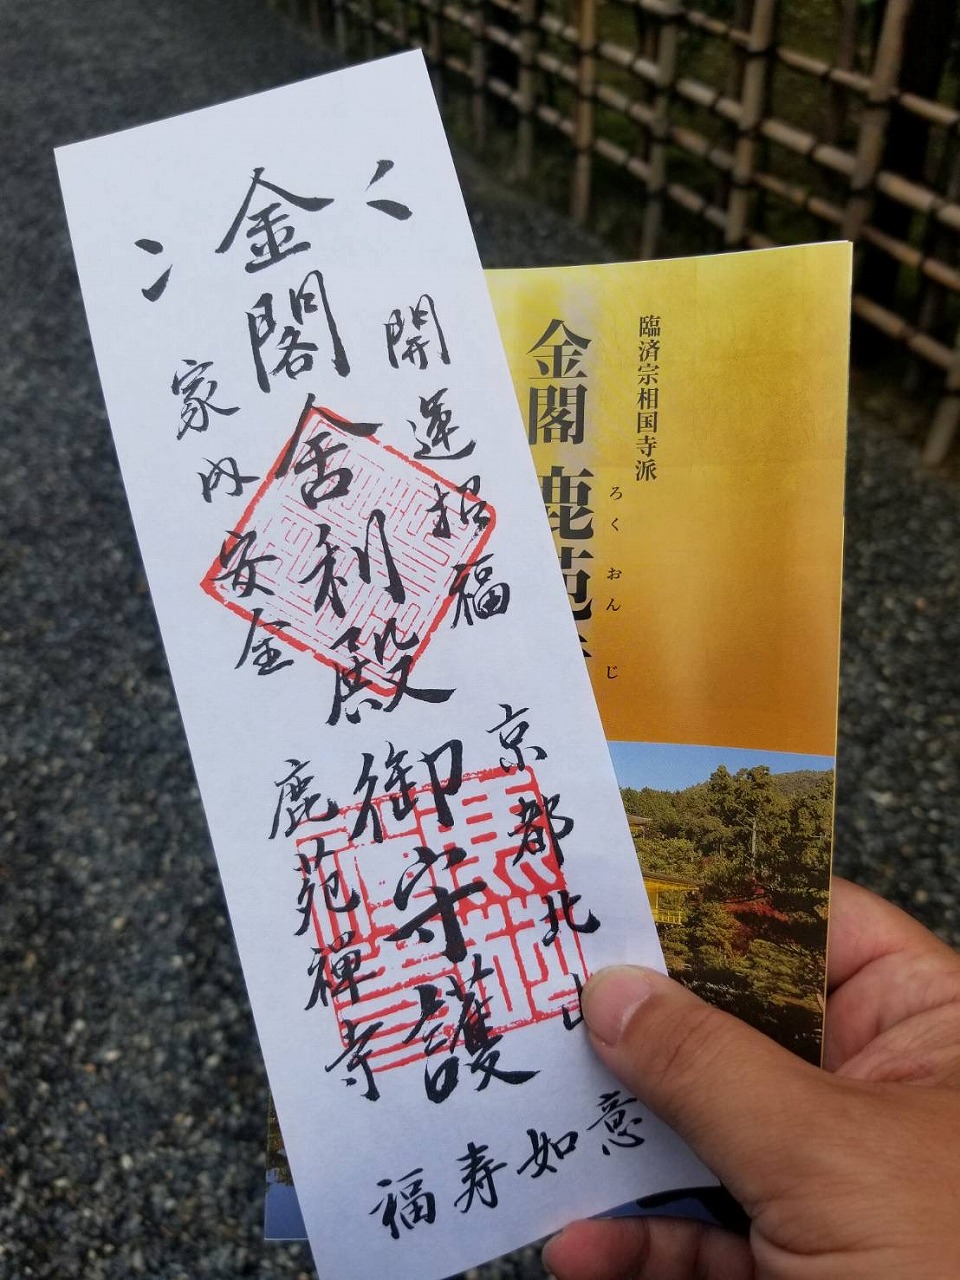 金閣舎利殿御守護
開運招福
家内安全
京都北山
鹿苑禅寺
福寿如意
臨済宗相国寺派
金閣 鹿苑
ろくおんじ